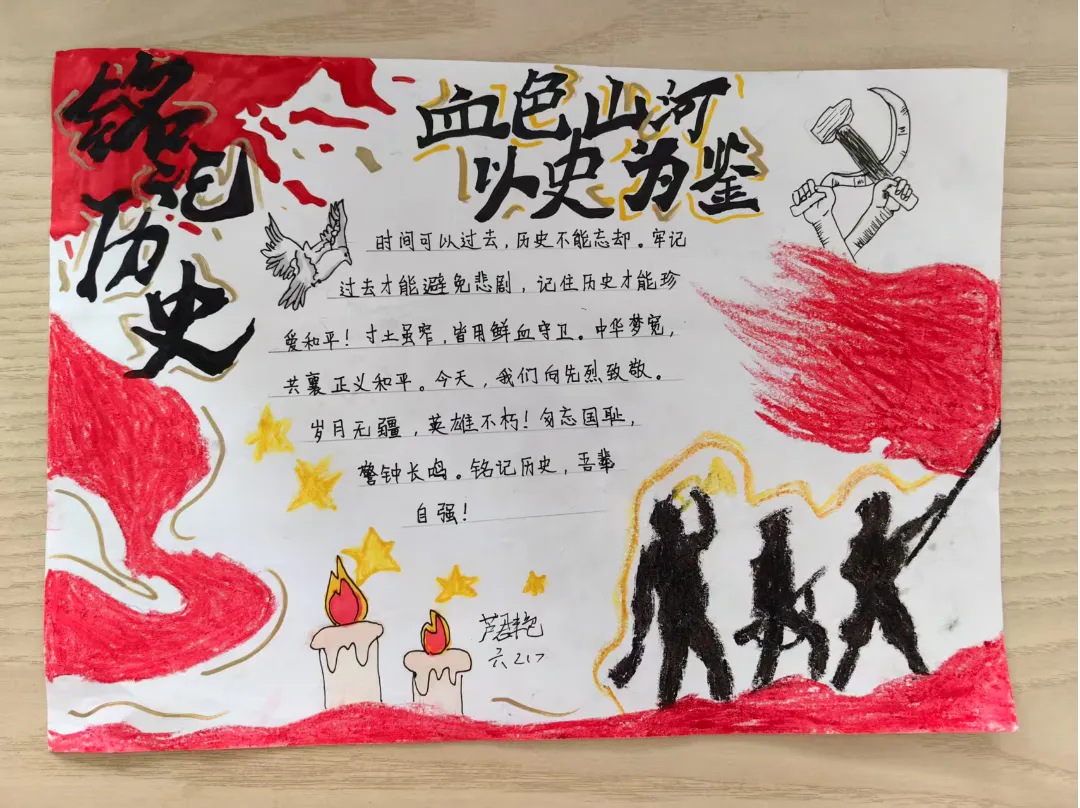 铭记
历史
血色山河
以史为鉴
时间可以过去，历史不能忘却。牢记
过去才能避免悲剧，记住历史才能珍
爱和平！寸土虽窄，皆用鲜血守卫。中华梦宽，
共襄正义和平。今天，我们向先烈致敬。
岁月无疆，英雄不朽！勿忘国耻，
警钟长鸣。铭记历史，吾辈
自强！
六217